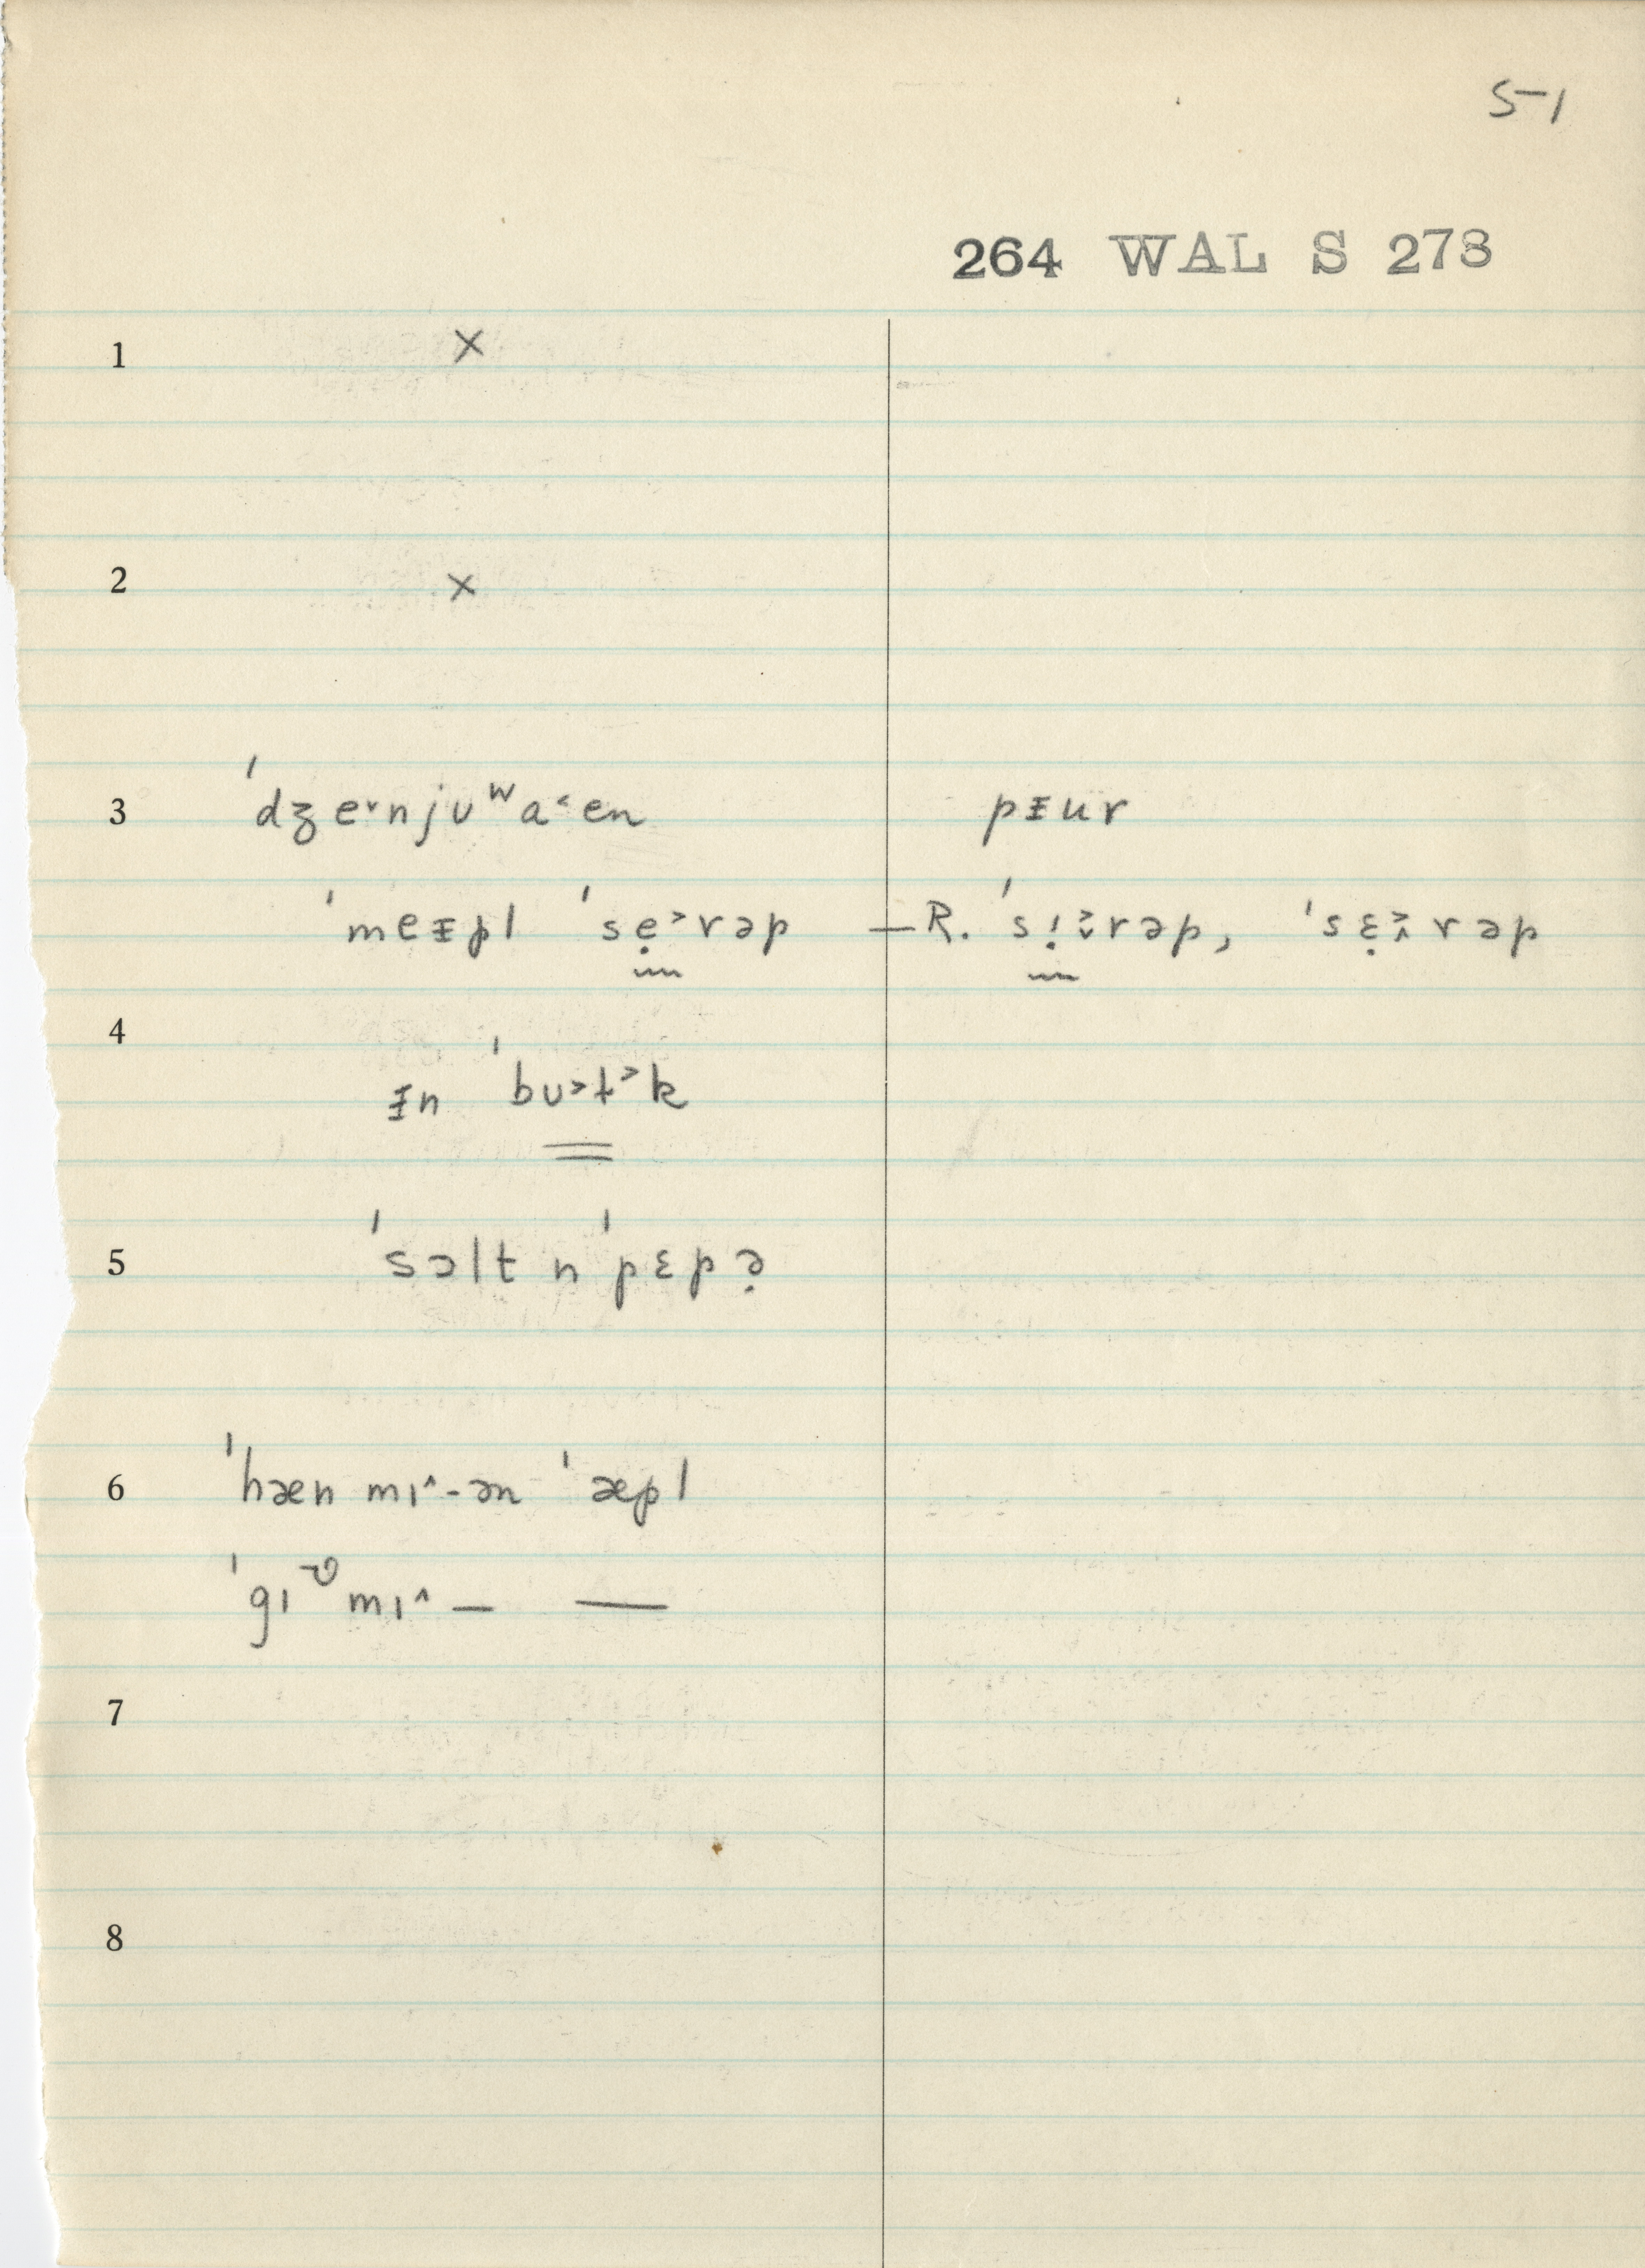 51
264 WAL S 273
1 ×
2 ×
3 ˈdʒe˅njʊʷa˂en pᵻur
ˈmeᵻpl ˈsẹ˃rəp — R. ˈsị˃̬rəp, ˈsɛ̣˃̭rəp
4
ᵻn ˈbʊ˃t˃k
5 ˈsɔlt n ˈpɛpə̣
6 ˈhæn mɪ˄-ən ˈæpl
ˈgɪᵛmɪ˄ — —
7
8